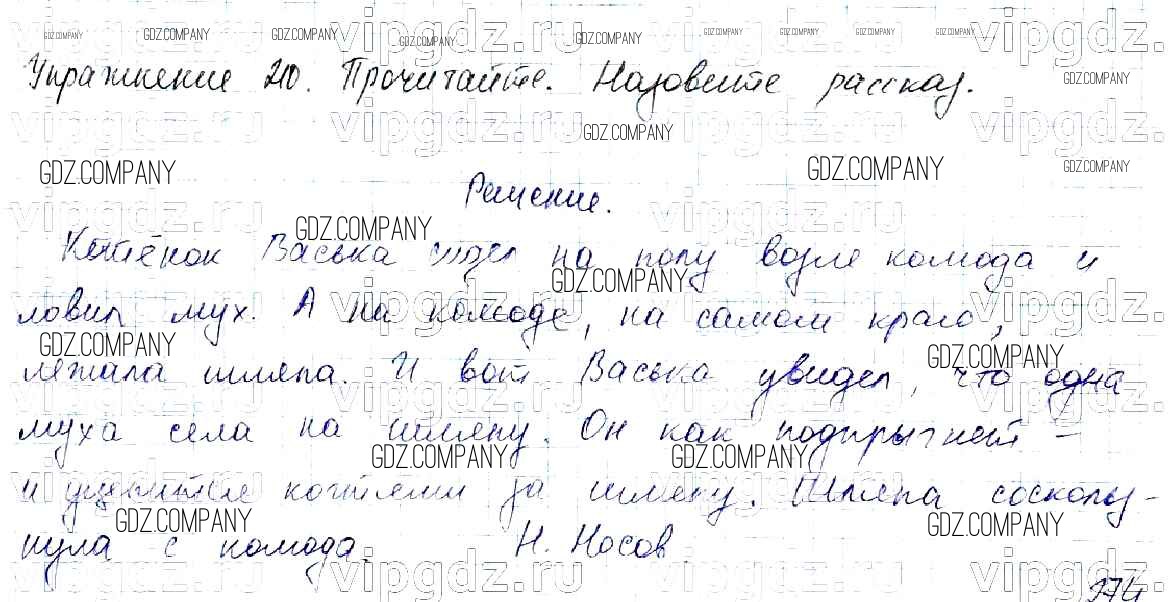 Упражнение 210. Прочитайте. Назовите рассказ.
Решение.
Котёнок Васька сидел на полу возле комода и
ловил мух. А на комоде, на самом краю,
лежала шляпа. И вот Васька увидел, что одна
муха села на шляпу. Он как подпрыгнет –
и уцепится когтями за шляпу. Шляпа соскольз-
нула с комода. Н. Носов
374
GDZ.COMPANY
vipgdz.ru